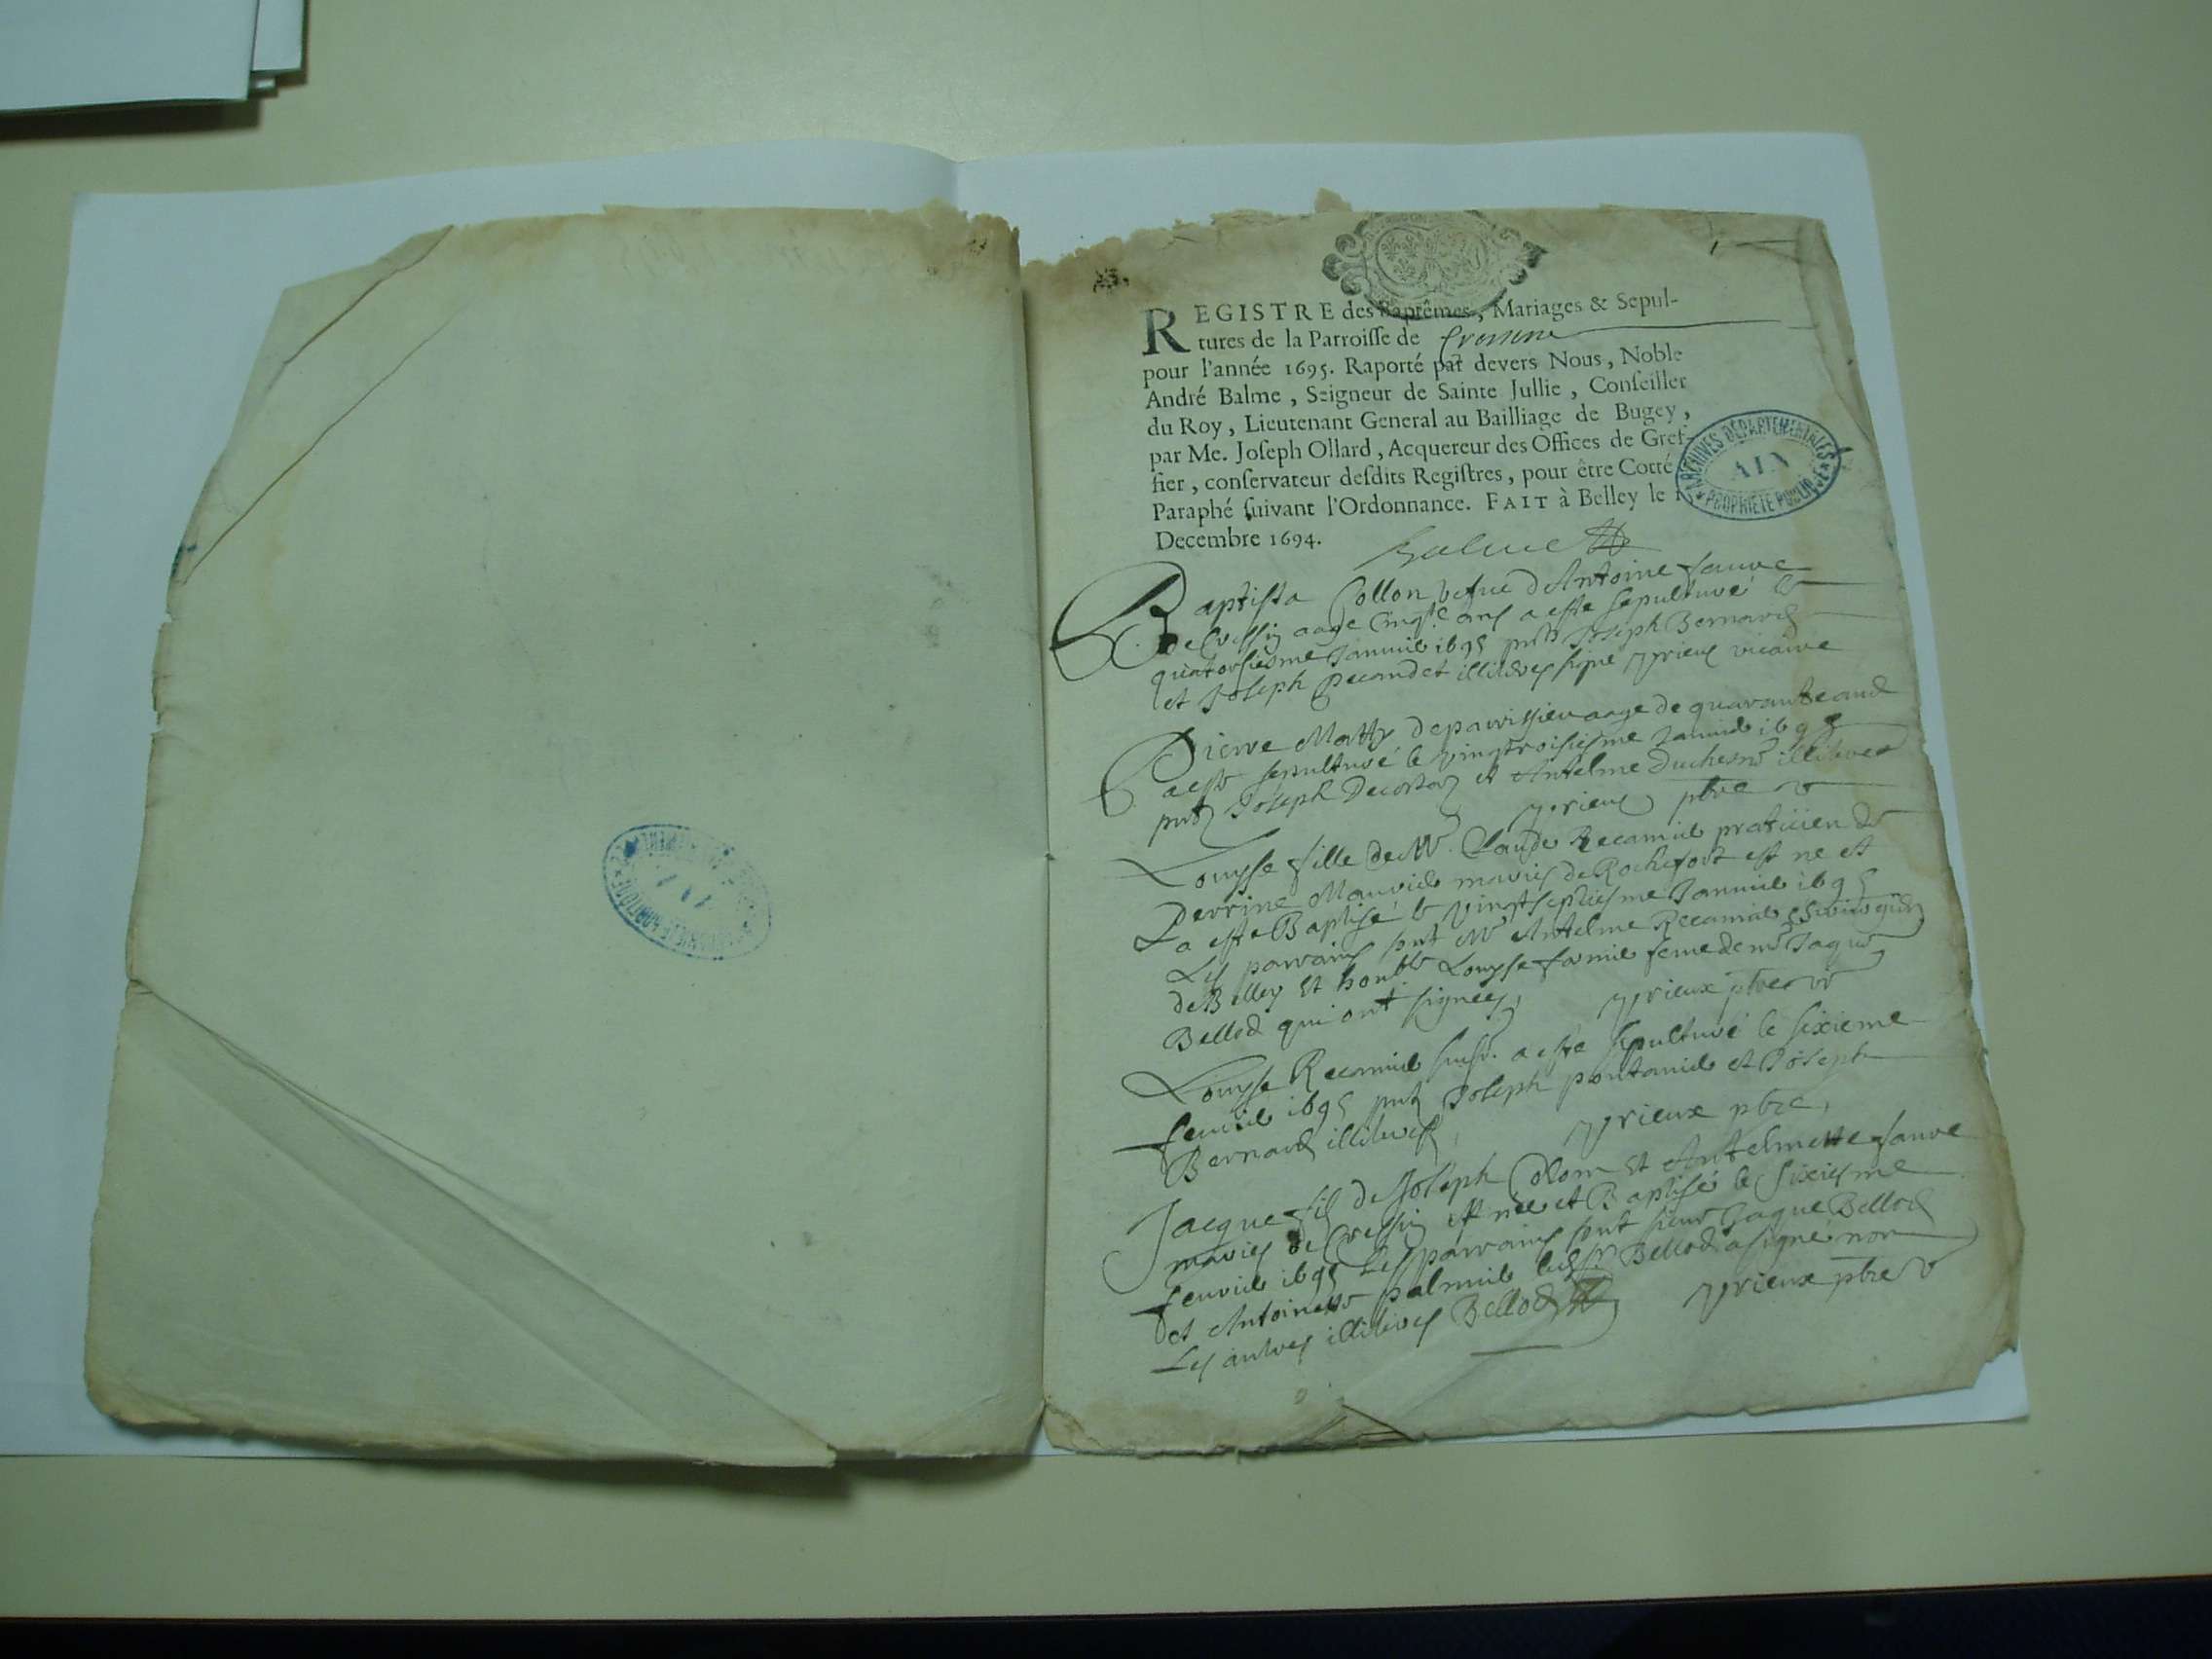 REGISTRE des Baptêmes, Mariages & Sepul-
tures de la Parroisse de
pour l'année 1695. Raporté par devers Nous, Noble
André Balme, Seigneur de Sainte Jullie, Conseiller
du Roy, Lieutenant General au Bailliage de Bugey,
par Me. Joseph Ollard, Acquereur des Offices de Gref-
fier, conservateur desdits Registres, pour être Cotté
Paraphé suivant l'Ordonnance. FAIT à Belley le
Decembre 1694.
Balme
ARCHIVES DÉPARTEMENTALES
AIN
PROPRIÉTÉ PUBLIQUE
Baptista Collon vefue d'Antoine faure
de Cressin aage Cinqte ans a este sepulturé le
quatorsiesme Januier 1695 pnts Joseph Bernard
et Joseph Decandet illiteres signe yrieux vicaire
Pierre Matty de parrissieu aage de quarante ans
a este sepulturé le vingtroisiesme Januier 1695
pnts Joseph et Antelme Duchesne illiteres
yrieux pbre v
Louyse fille de Mr. Claude Recamier praticien de
Perrine Mauricle mariés de Rochefort est ne et
a este Baptisé le vingtseptiesme Januier 1695
Les parrains sont Mr Antelme Recamier
de Belley et honble Louyse femme de mr Jaque
Bellod qui ont signees, yrieux pbre v
Louyse Recamier susd. a este sepulturé le sixieme
feurier 1695 pnts Joseph pontanier et Joseph
Bernard illiteres, yrieux pbre,
Jacque fils de Joseph Colom et Antelmette faure
mariés de Cressin est née et Baptisé le sixiesme
feurier 1695 Les parrains sont sieur Jaque Bellod
et Antoinette palmier led. sr. Bellod a signé non
Les autres illiteres Bellod yrieux pbre v